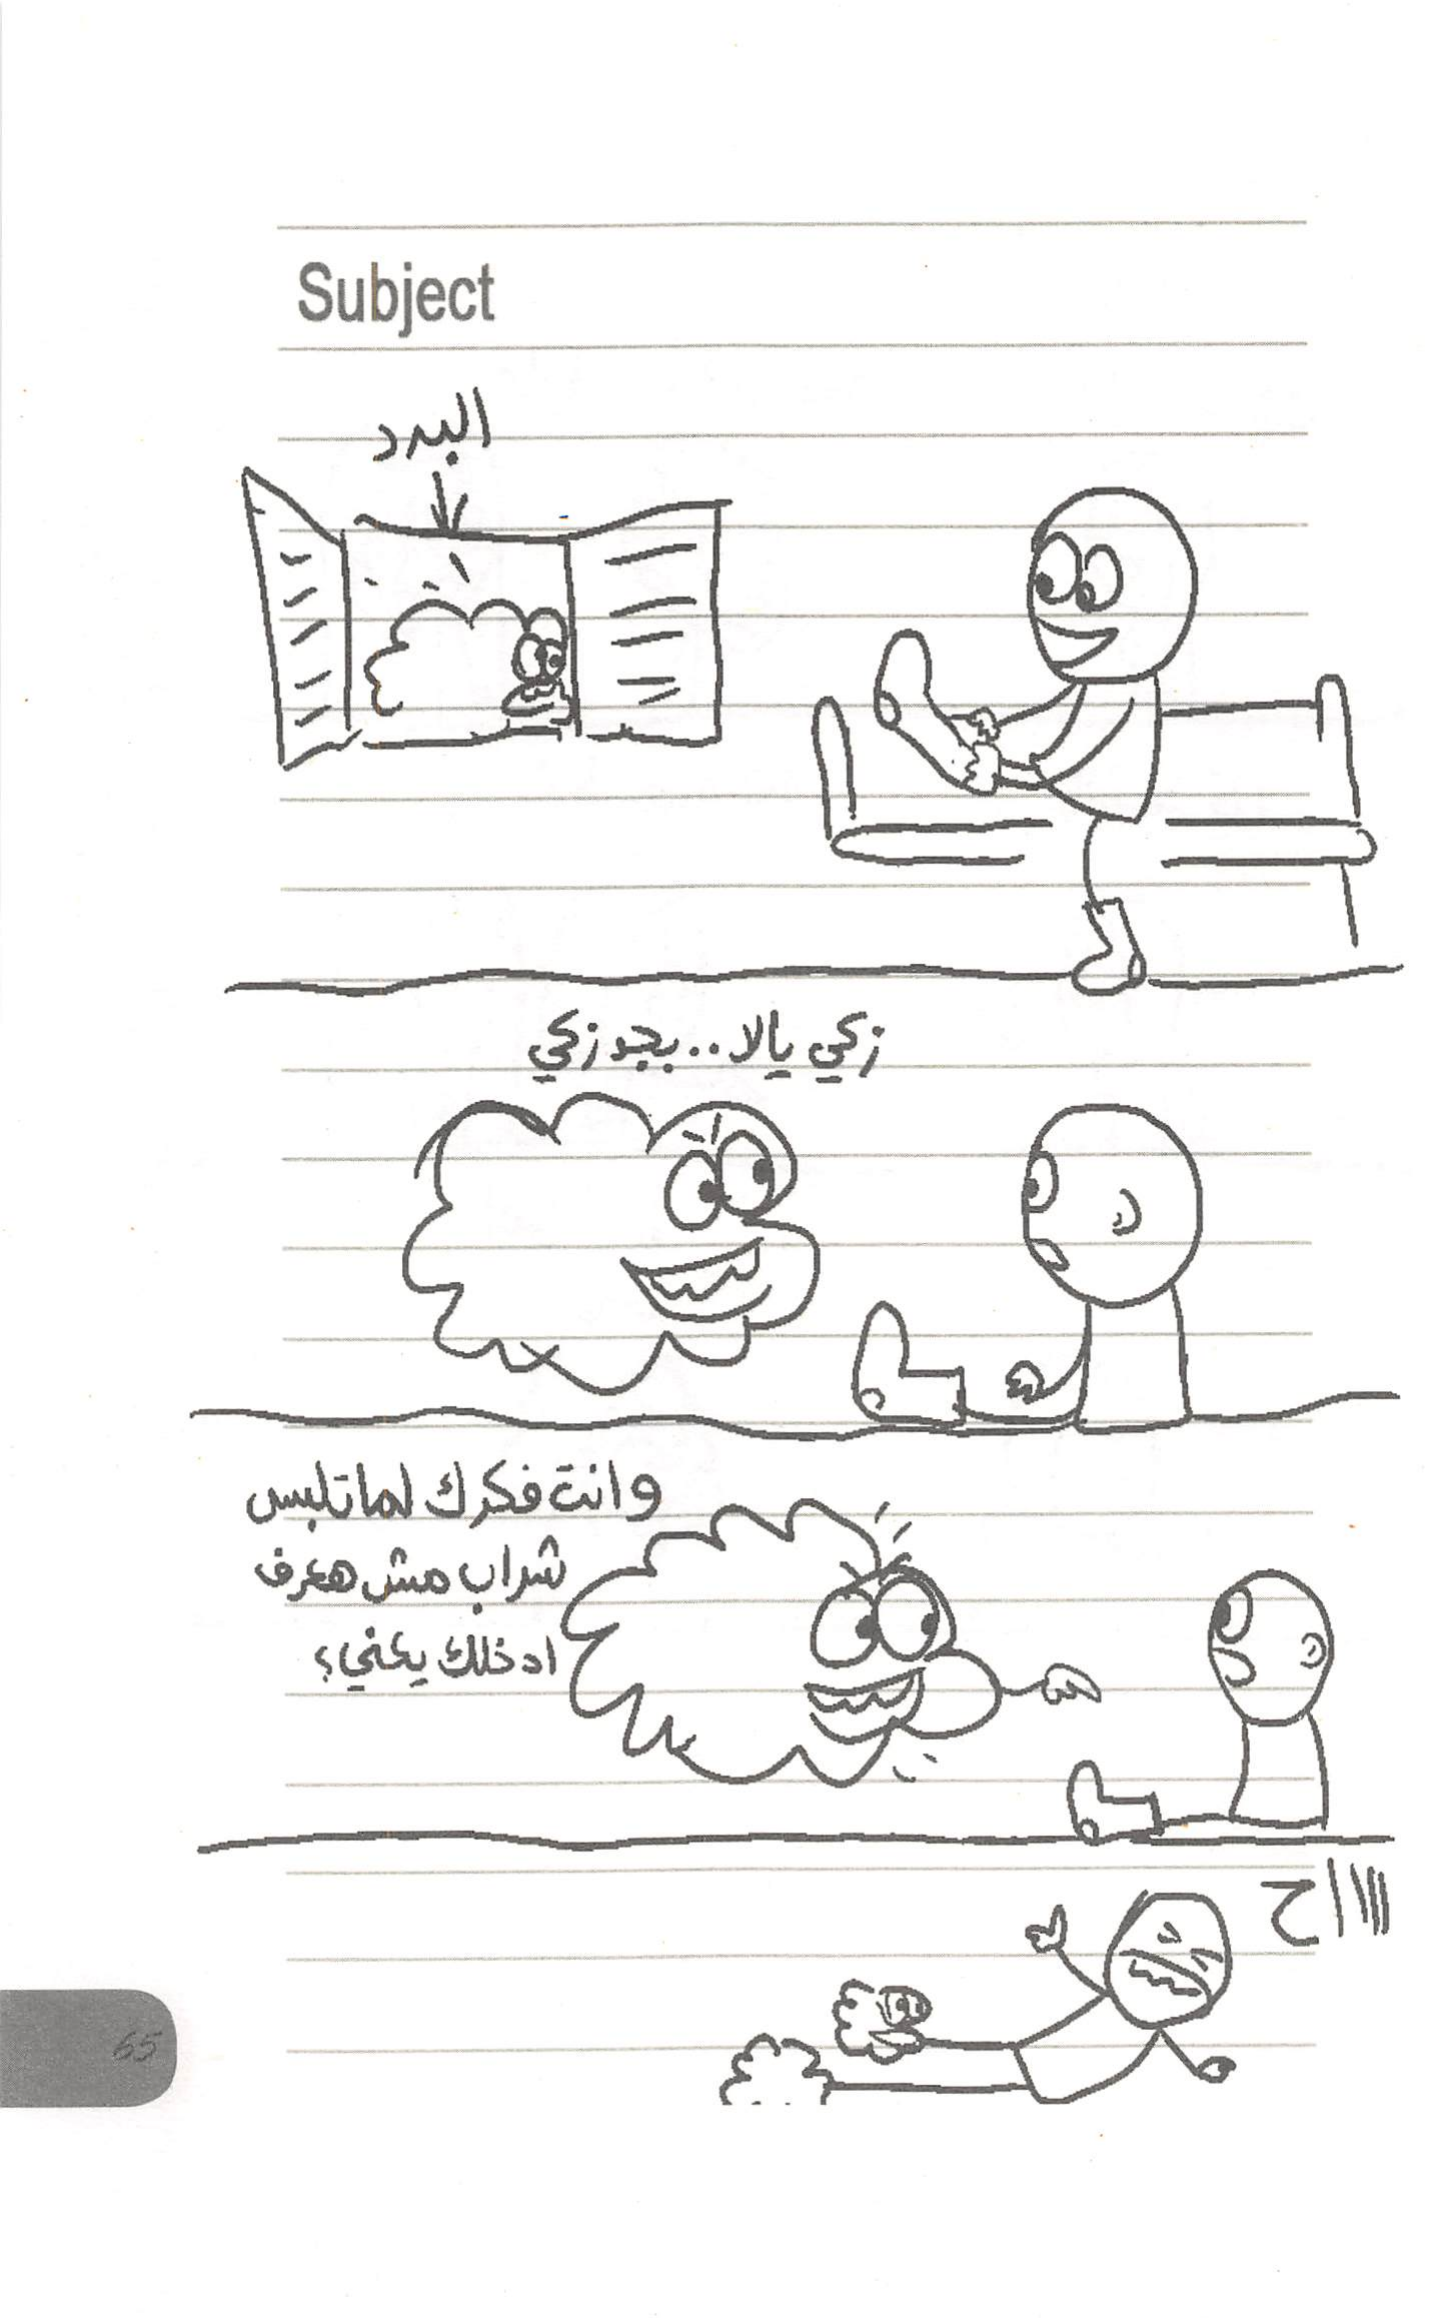 Subject
البرد
زكي يالا.. بجد زكي
وانت فكرك لما تلبس
شراب مش هعرف
ادخلك يعني؟
65